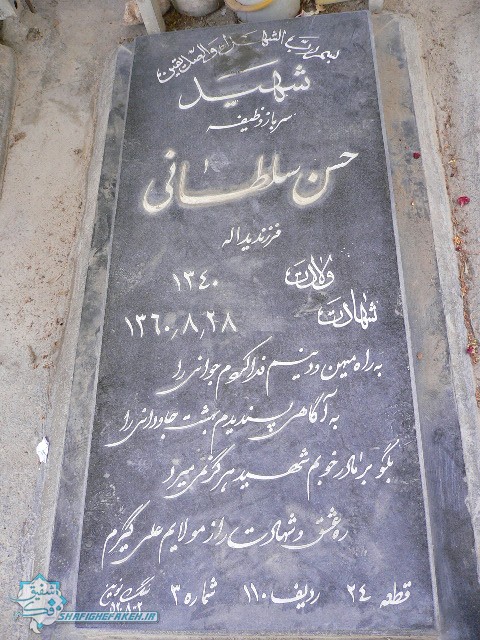 بسم رب الشهداء والصدیقین
شهید
سرباز وظیفه
حسن سلطانی
فرزند یداله
ولادت ۱۳۴۰
شهادت ۱۳۶۰٫۸٫۲۸
به راه میهن و دینم فدا کردم جوانی را
به آگاهی پسندیدم بهشت جاودانی را
بگو بر مادر خوبم شهید هرگز نمی‌میرد
ره عشق و شهادت را ز مولایم علی گیرم
قطعه ۲۴ ردیف ۱۱۰ شماره ۳
سنگ
شفیق فکه
SHAFIGHEFAKEH.IR